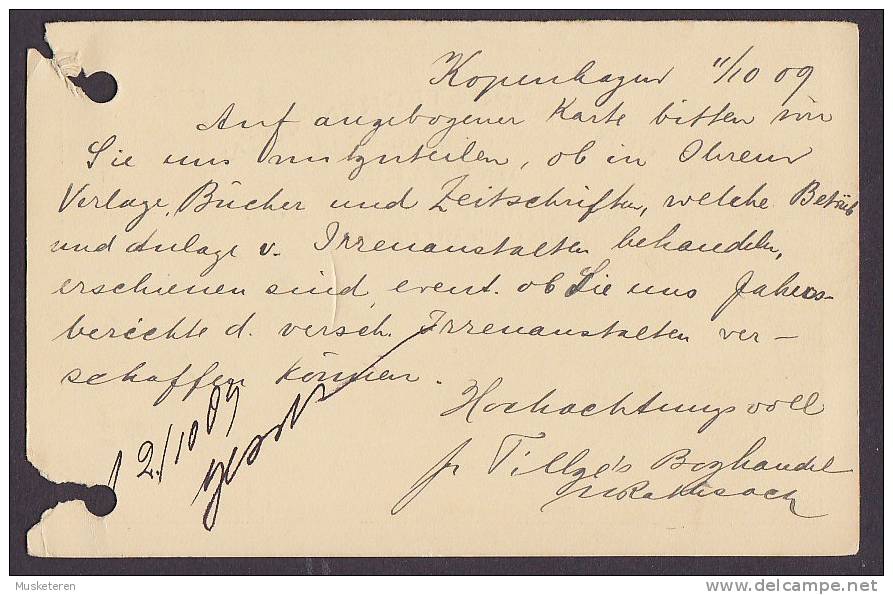 Kopenhagen 11/10 09
Auf angebogener Karte bitten wir
Sie uns mitzuteilen, ob in Ihrem
Verlage, Bücher und Zeitschriften, welche Betrieb
und Anlage v. Irrenanstalten behandeln,
erschienen sind, event. ob Sie uns Jahres-
berichte d. versch. Irrenanstalten ver-
schaffen können.
Hochachtungsvoll
pr Tillge's Boghandel
12/10 09
Musketeren
delcampe.net